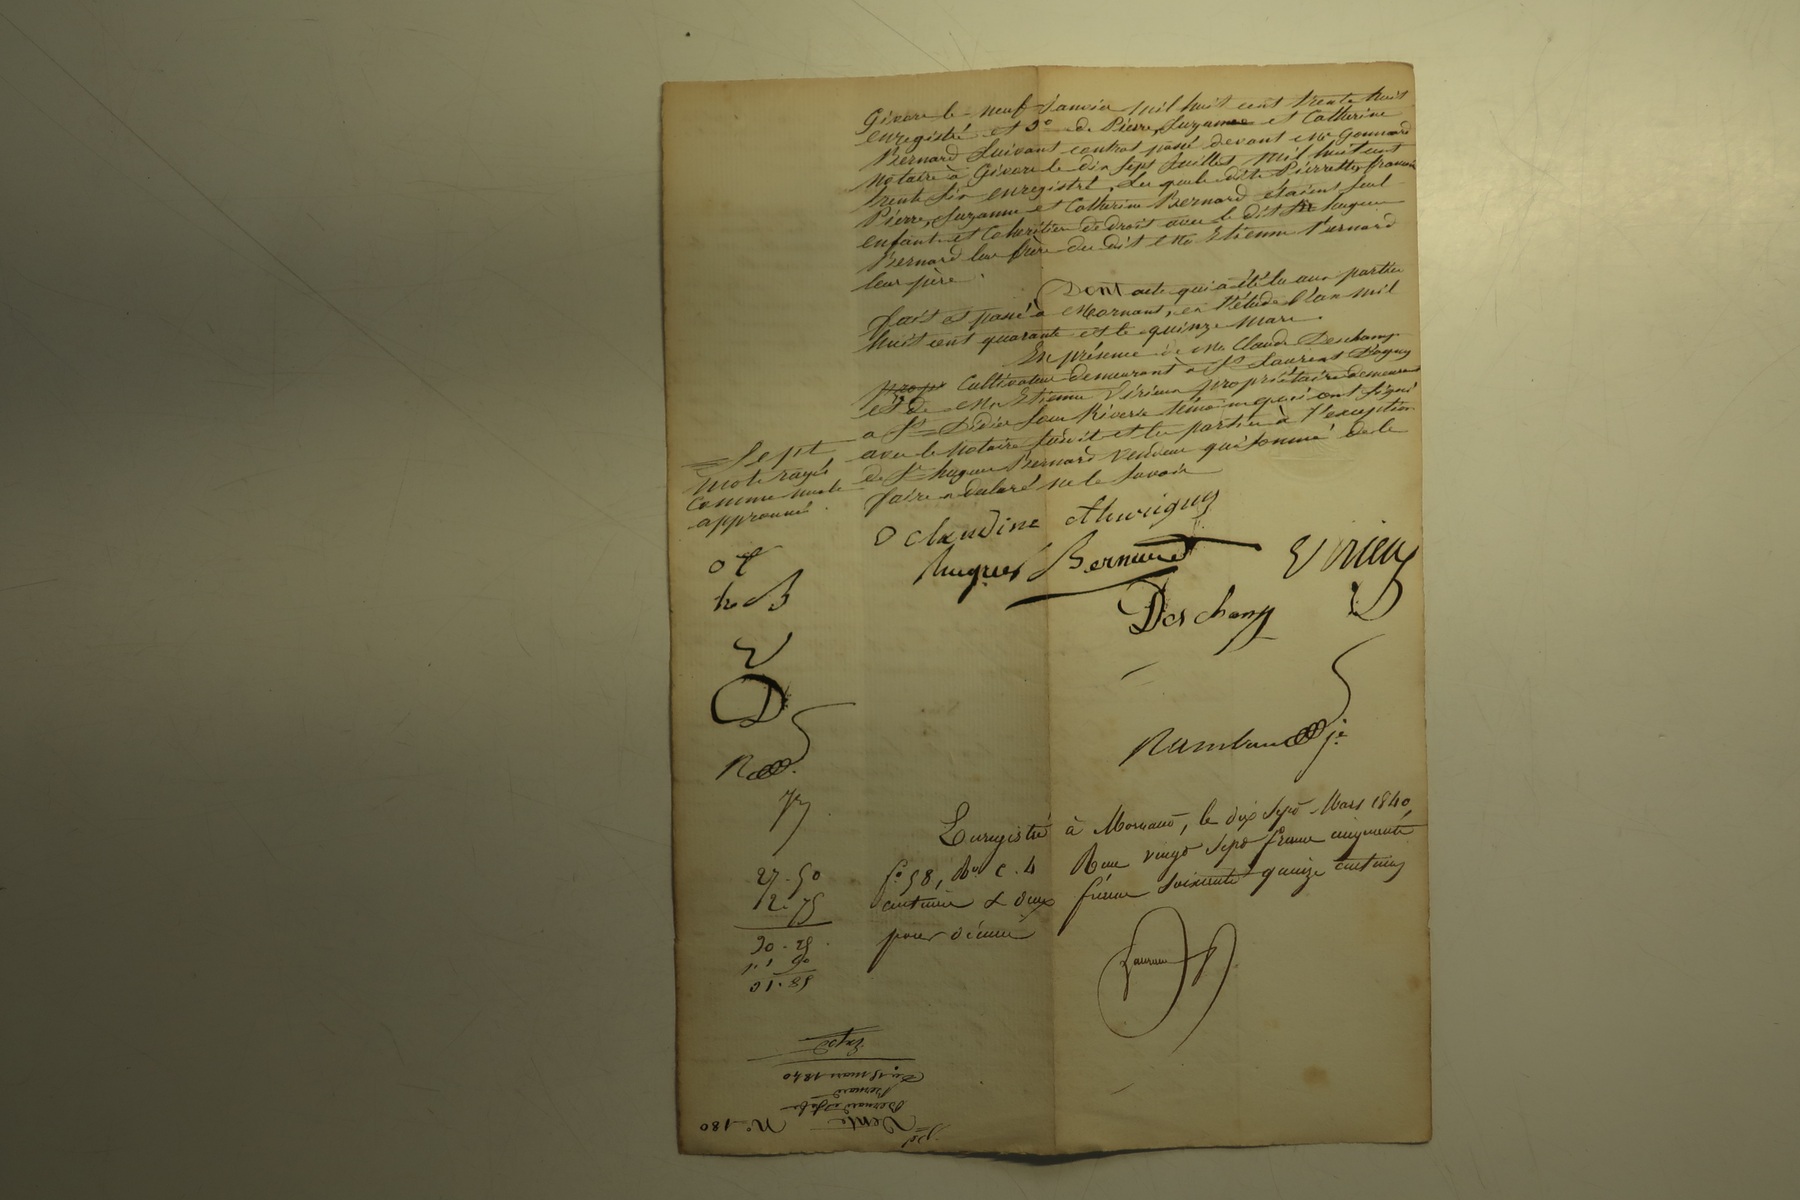 Givors le neuf Janvier mil huit cent trente huit
enregistré et 3° de Pierre, Suzanne et Catherine
Bernard suivant contrat passé devant Me Gonnard
notaire à Givors le dix sept Juillet mil huit cent
trente six enregistré, les quels dits Pierrette, françois
Pierre, Suzanne et Catherine Bernard étaient seul
enfants et cohéritiers de droit avec le dit Sr hugues
Bernard leur frère du dit Etienne Bernard
leur père.
Dont acte qui a été lu aux parties
fait et passé à Mornant, en l'étude l'an mil
huit cent quarante et le quinze Mars.
En présence de Mr Claude Deschamps
propr cultivateur demeurant à St Laurent D'agny
et de Mr Etienne Virieux propriétaire demeurant
a St Didier sous Riverie témoins qui ont signé
avec le notaire susdit et les parties à l'exception
de Sr hugues Bernard vendeur qui sommé de le
faire a déclaré ne le savoir
Sept
mots rayés
comme nuls
approuvé.
claudine
hugues Bernard
E Virieux
Deschamp
h B
E V
D
R
Enregistré à Mornant, le dix sept Mars 1840,
f° 58, Ro c. 4 Reçu vingt sept francs cinquante
centimes & deux francs soixante quinze centimes
pour décime
27-50
2-75
30-25
Expd
Du 15 mars 1840
Bernard
Bernard à
Vente
N° 180